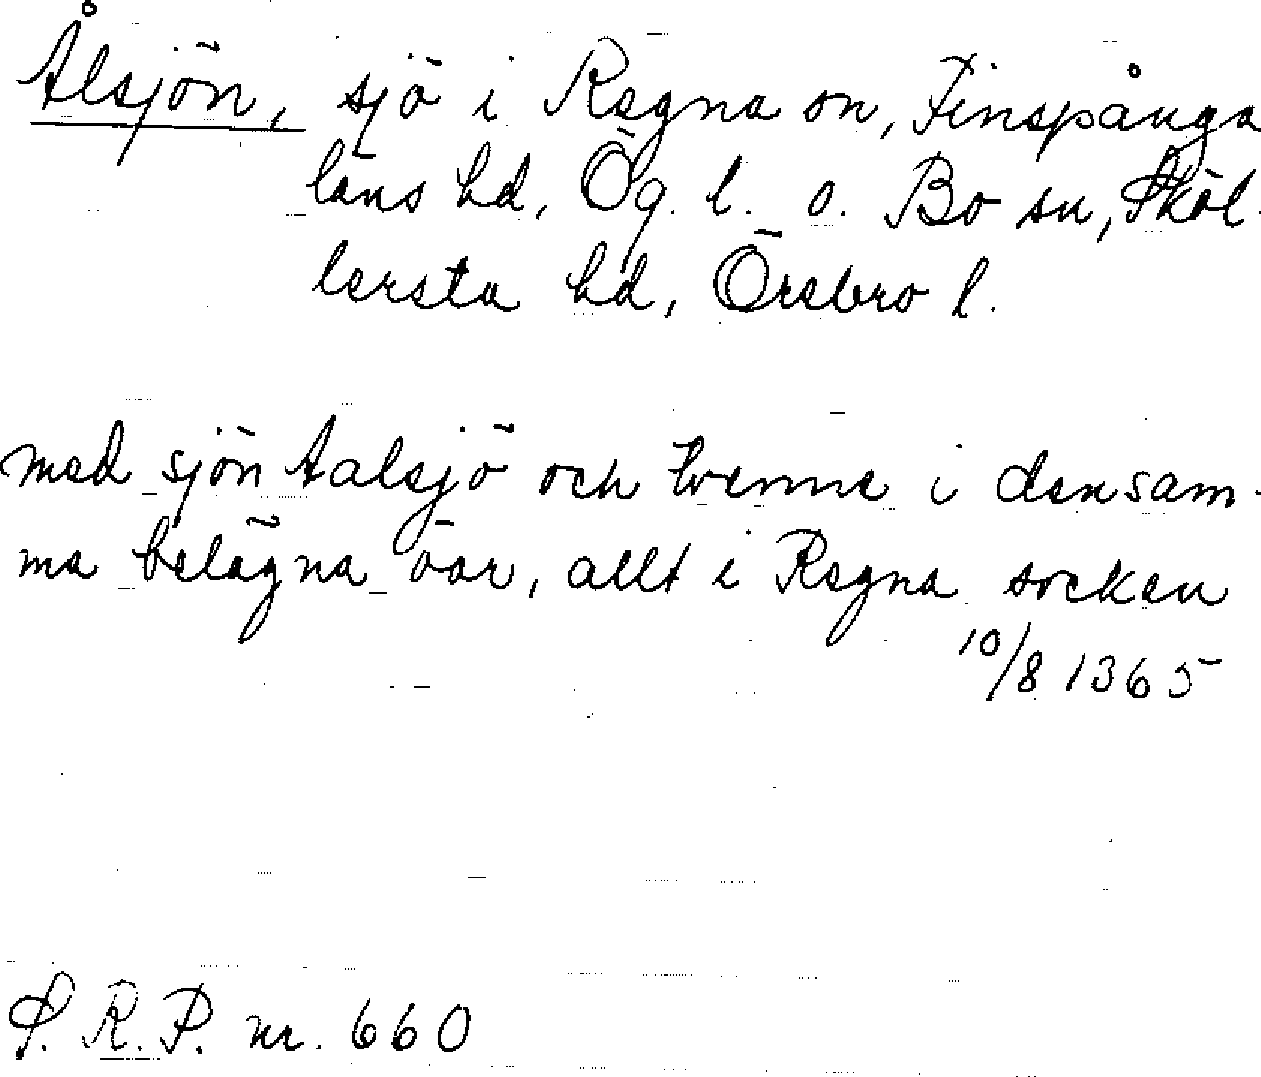 Ålsjön, sjö i Regna sn, Finspånga
läns hd, Ög. l. o. Bo sn, Sköl-
lersta hd, Örebro l.
med sjön Aalsjö och tvenne i densam-
ma belägna öar, allt i Regna socken
10/8 1365
S. R. P. nr. 660